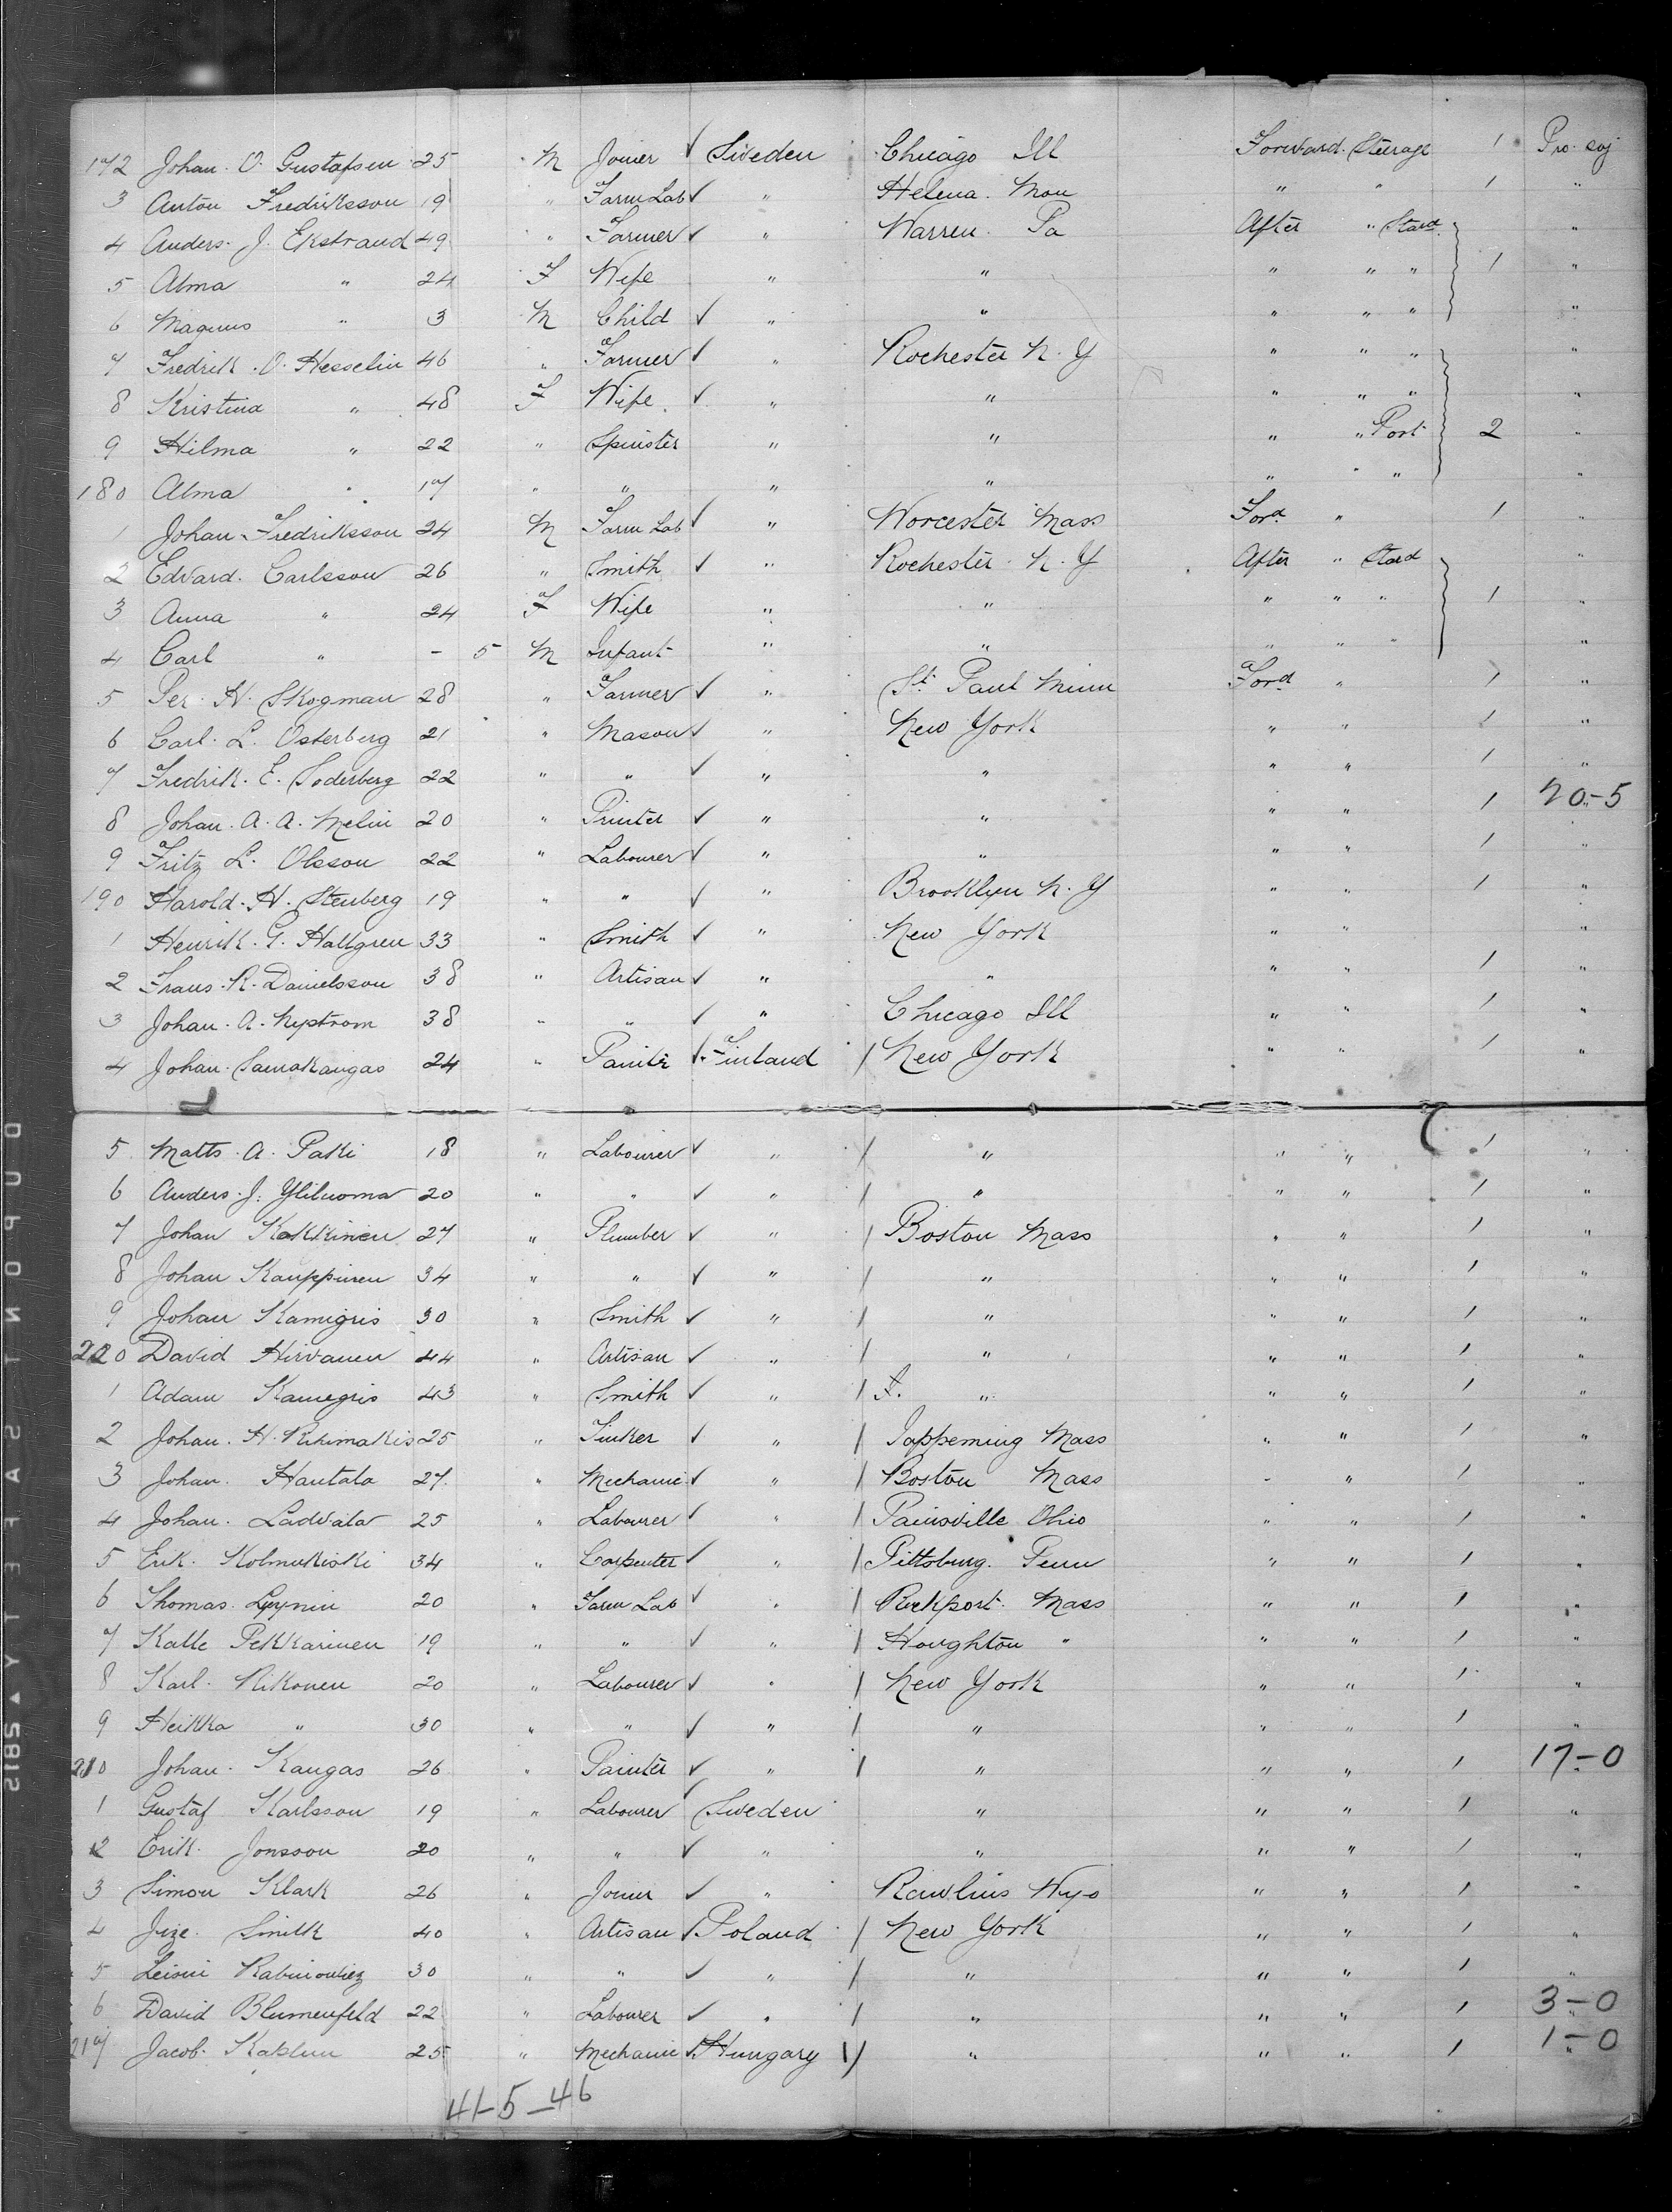 172 Johan. O. Gustafsen 25 M Joiner ✓ Sweden Chicago Ill Forward. Steerage 1 Pro. soj
3 Anton Fredriksson 19 " Farm Lab ✓ " Helena. Mon " " 1 "
4 Anders. J. Ekstrand 49 " Farmer ✓ " Warren. Pa After " Stard "
5 Alma " 24 F Wife " " " " " 1 "
6 Magnus " 3 M Child ✓ " " " " " "
7 Fredrik. O. Hesselin 46 " Farmer ✓ " Rochester N. Y " " " "
8 Kristina " 48 F Wife ✓ " " " " " "
9 Hilma " 22 " Spinster " " " " Port 2 "
180 Alma " 17 " " " " " " " "
1 Johan Fredriksson 24 M Farm Lab ✓ " Worcester Mass Ford " 1 "
2 Edvard. Carlsson 26 " Smith ✓ " Rochester N. Y After " Stard "
3 Anna " 24 F Wife " " " " " 1 "
4 Carl " - 5 M Infant " " " " " "
5 Per. H. Skogman 28 " Farmer ✓ " St. Paul Minn Ford " 1 "
6 Carl. L. Osterberg 21 " Mason ✓ " New York " " 1 "
7 Fredrik. E. Soderberg 22 " " ✓ " " " " 1 "
8 Johan. A. A. Melin 20 " Printer ✓ " " " " 1 " 20-5
9 Fritz L. Olsson 22 " Labourer ✓ " " " " 1 "
190 Harold. H. Stenberg 19 " " ✓ " Brooklyn N. Y " " 1 "
1 Henrik. G. Hallgren 33 " Smith ✓ " New York " " "
2 Frans. R. Danielsson 38 " Artisan ✓ " " " " 1 "
3 Johan. A. Nystrom 38 " " ✓ " Chicago Ill " " 1 "
4 Johan. Samakangas 24 " Painter ✓ Finland / New York " " 1 "
5 Matts. A. Paki 18 " Labourer ✓ " / " " " 1 "
6 Anders. J. Yliluoma 20 " " ✓ " / " " " 1 "
7 Johan Kokkinen 27 " Plumber ✓ " / Boston Mass " " 1 "
8 Johan Kauppinen 34 " " ✓ " / " " " 1 "
9 Johan Kamigris 30 " Smith ✓ " / " " " 1 "
200 David Hirvanen 44 " Artisan ✓ " / " " " 1 "
1 Adam Kamegris 43 " Smith ✓ " / " " " 1 "
2 Johan. H. Rihimakis 25 " Tinker ✓ " / Jappeming Mass " " 1 "
3 Johan. Hautala 27 " Mechanic ✓ " / Boston Mass " " 1 "
4 Johan. Ladvala 25 " Labourer ✓ " / Painsville Ohio " " 1 "
5 Erik. Kolmukiski 34 " Carpenter ✓ " / Pittsburg. Penn " " 1 "
6 Thomas 20 " Farm Lab ✓ " / Rockport. Mass " " 1 "
7 Kalle Pekkarinen 19 " " ✓ " / Houghton " " " 1 "
8 Karl. Rikonen 20 " Labourer ✓ " / New York " " 1 "
9 Heikka " 30 " " ✓ " / " " " 1 "
210 Johan. Kangas 26 " Painter ✓ " / " " " 1 " 17-0
1 Gustaf Karlsson 19 " Labourer ✓ Sweden " " " 1 "
2 Erik. Jonsson 20 " " ✓ " " " " 1 "
3 Simon Klark 26 " Joiner ✓ " Rawlins Wyo " " 1 "
4 Jize. Smilk 40 " Artisan ✓ Poland / New York " " 1 "
5 Rabinowiez 30 " " ✓ " / " " " 1 "
6 David Blumenfeld 22 " Labourer ✓ " / " " " 1 " 3-0
217 Jacob. Kaplun 25 " Mechanic ✓ Hungary / " " " 1 " 1-0
41-5-46
DUPONT SAFETY ▲ 2812